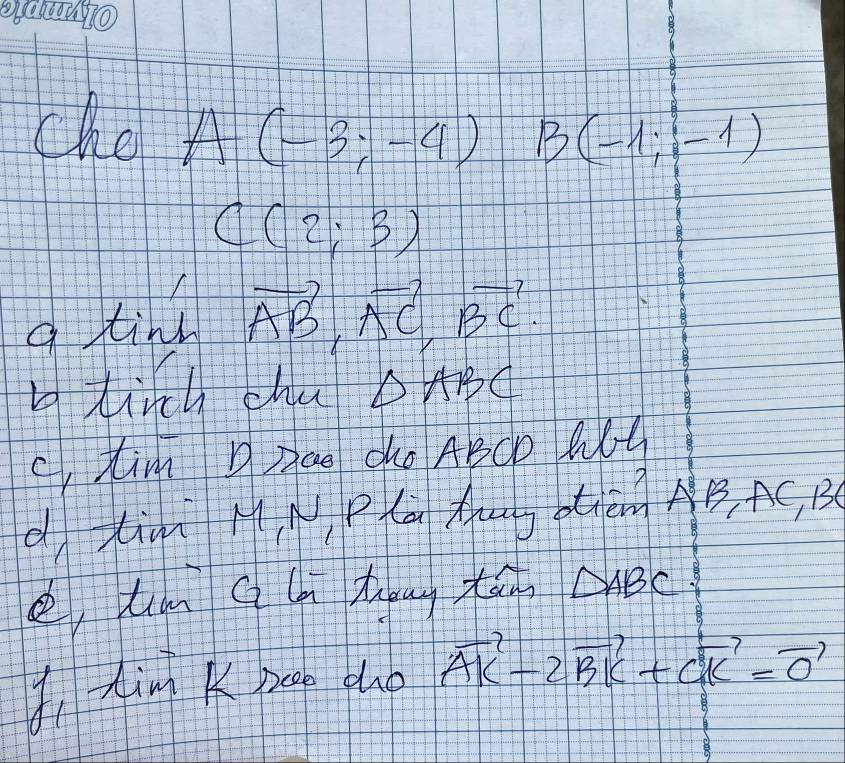 Olympic
Cho A(-3; -4) B(-1; -1)
C(2; 3)
a tính \overrightarrow{AB}, \overrightarrow{AC}, \overrightarrow{BC}.
b tính chu ΔABC
c, tìm D sao cho ABCD hbh
d, tìm M, N, P là trung điểm AB, AC, BC
e, tìm G là trọng tâm ΔABC.
f, tìm K sao cho \overrightarrow{AK} - 2\overrightarrow{BK} + \overrightarrow{CK} = \overrightarrow{0}